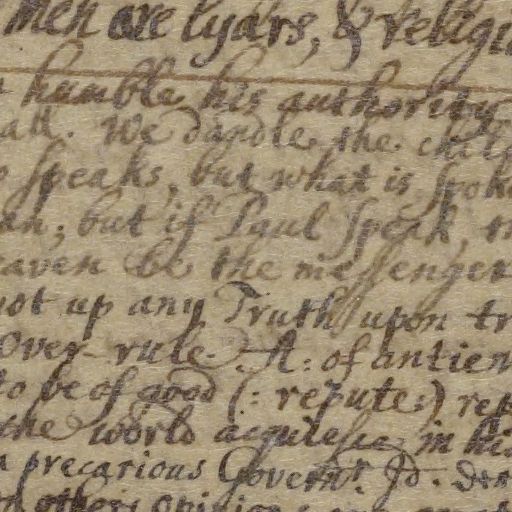 men are lyars, & religi
humble his authority
all. We dandle the child
speaks, but what is spoke
an; but if Paul speak, th
eaven be the messenger
not up any Truth upon tr
Over-rule. A: of antien
to be of good (: repute:) rep
the world acquiesce in his
a precarious Governt. Id.
others opinion